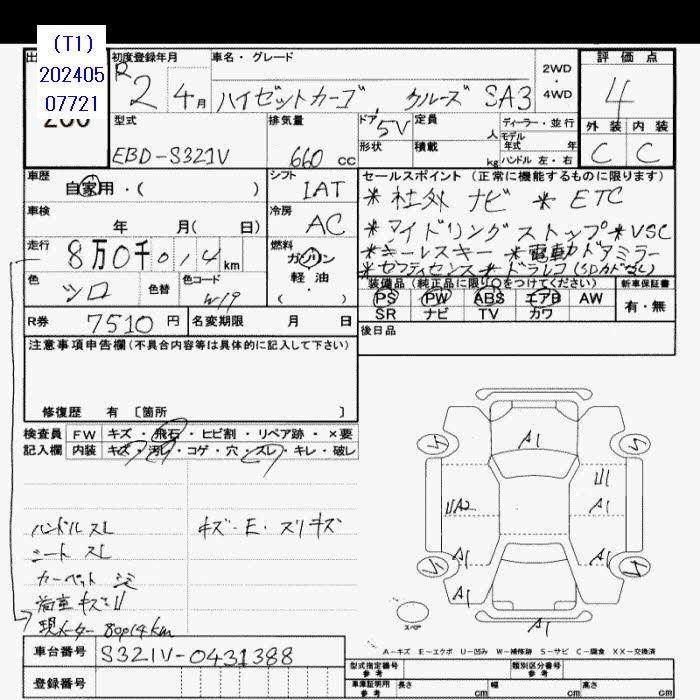 (T1)
202405
07721
出
200
初度登録年月
R2 4月
車名・グレード
ハイゼットカーゴ クルーズ SA3
2WD
・
4WD
評価点
4
外装 内装
C C
型式
EBD-S321V
排気量
660 cc
ドア 5V
形状
定員 人
積載 kg
ディーラー・並行
モデル
年式 年
ハンドル 左・右
車歴
自家用・( )
シフト
IAT
セールスポイント (正常に機能するものに限ります)
*社外ナビ *ETC
*アイドリングストップ *VSC
*キーレスキー *電動ドアミラー
ドラレコ(SDカードなし)
車検
年 月( 日)
冷房
AC
走行
8万0千014km
燃料
ガソリン
軽油
・( )
色
シロ
色替
色コード
W19
装備品(純正品に限り○をつけてください)
PS PW ABS エアB AW
SR ナビ TV カワ
新車保証書
有・無
R券 7510円
名変期限 月 日
後日品
注意事項申告欄(不具合内容等は具体的に記入して下さい)
修復歴 有 〔箇所 〕
検査員 FW キズ・飛石・ヒビ割・リペア跡・×要
記入欄 内装 キズ・汚れ・コゲ・穴・スレ・キレ・破レ
ハンドルスレ
シートスレ
カーペット
荷室キズ
現メーター 80014km
キズ・E・スリキズ
A1
A1
A1
A1
A1
A1
A1
スペア
A−キズ E−エクボ U−凹み W−補修跡 S−サビ C−腐食 XX−交換済
車台番号 S321V-0431388
登録番号
型式指定番号
参考
類別区分番号
参考
車庫証明用
参考
長さ cm
幅 cm
高さ cm